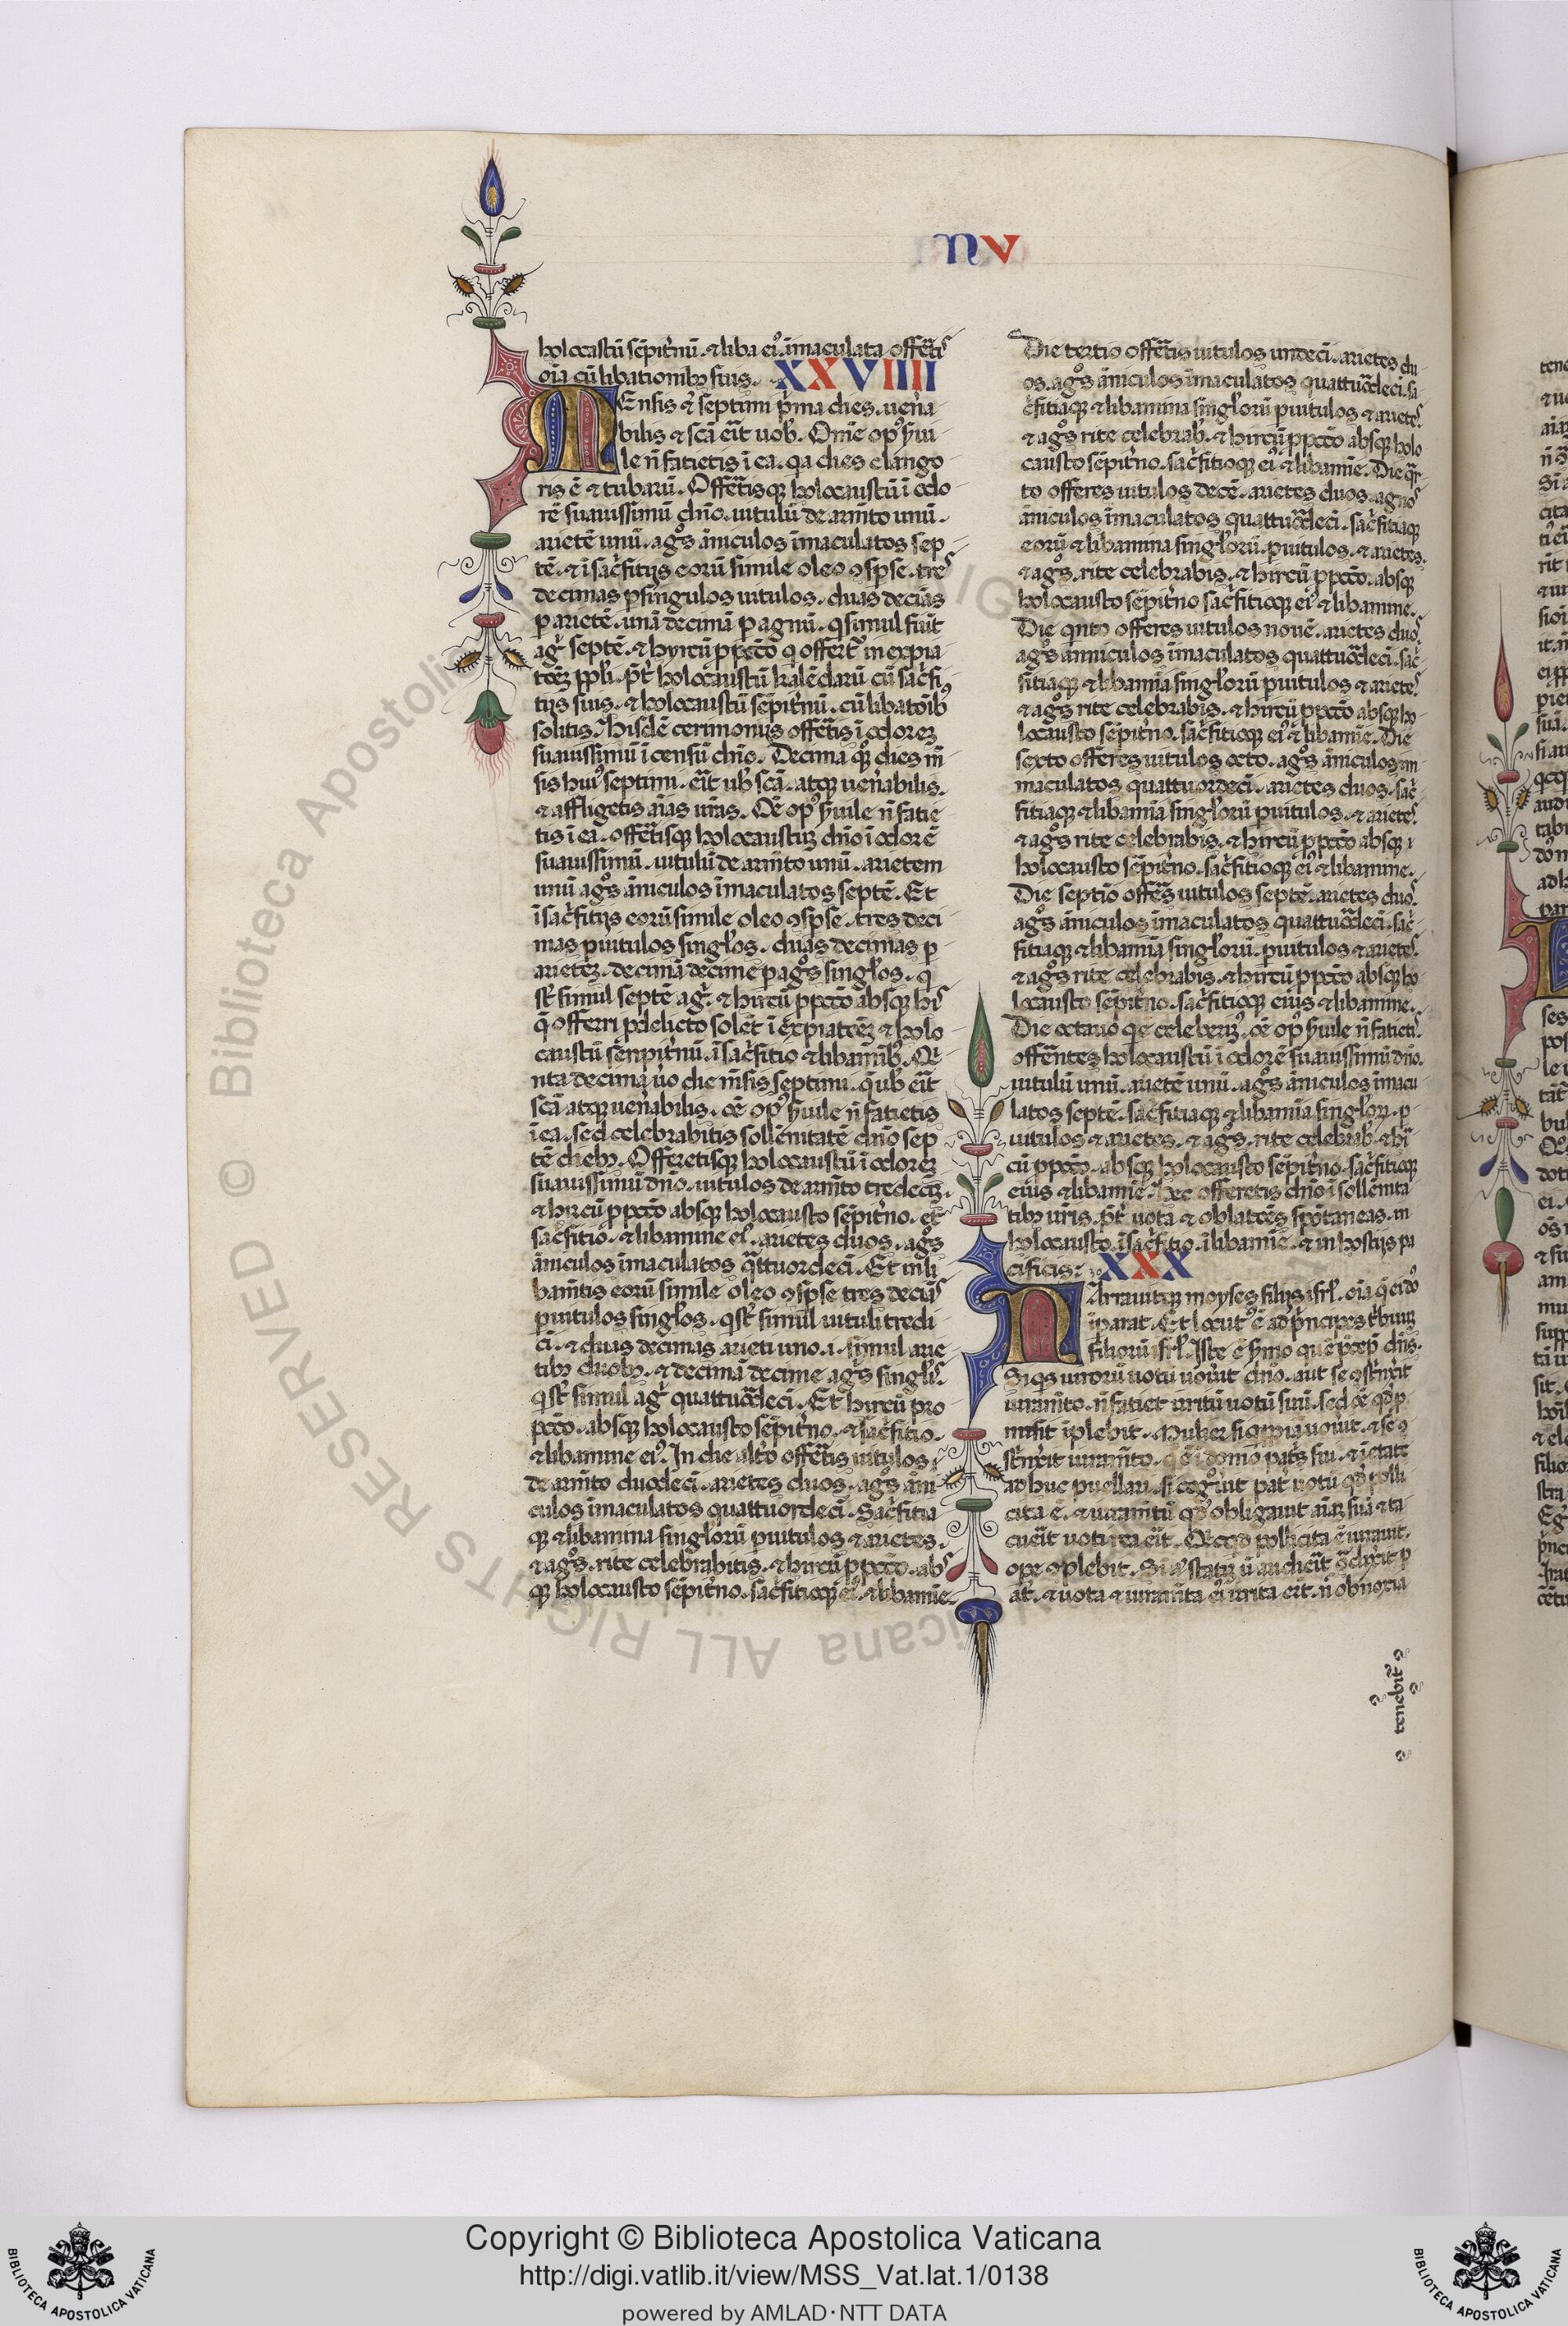 NV
holocastū sēpit̄nū ⁊ liba ei⁹ īmaculata offēt⁾
oīa cū libationibꝫ suis. XXVIIII
MEnsis ē septimi p̄ma dies uen̄a
bilis ⁊ sc̄a eīt uob̄. Om̄e op⁹ ẜui
le n̄ fatietis ī ea. qa dies clango
ris ē ⁊ tubarū. Offēt̄isqꝫ holocaustū ī odo
rē suauissimū dn̄o. uitulū de arm̄to unū.
arietē unū. ag̊s āniculos īmaculatos sep
tē. ⁊ ī sac̄fitijs eorū simile oleo ꝯsp̄se. tres
decimas ꝑ singulos uitulos. duas decīas
ꝑ arietē. unā decimā ꝑ agnū. q simul siūt
ag̓ septē. ⁊ hyrcū ꝓ pctō q offert̄ in expia
tōeꝫ ppl̓i. p̄t̓ holocaustū kalēdarū cū sac̄fi
tijs suis. ⁊ holocaustū sēpit̄nū. cū libatōibꝰ
solitis. Hisdē cerimonijs offēt̄is ī odoreꝫ
suauissimū ī censū dn̄o. Decima q̊ꝫ dies m̄
sis hui⁹ septimi. eīt ub̄ sc̄a. atqꝫ uen̄abilis.
⁊ affligetis aīas ur̄as. Oē op⁹ ẜuile n̄ fatie
tis ī ea. offēt̄isqꝫ holocaustuꝫ dn̄o ī odorē
suauissimū. uitulū de arm̄to unū. arietem
unū ag̊s āniculos īmaculatos septē. Et
ī sac̄fitijs eorū simile oleo ꝯsp̄se. tres deci
mas ꝑ uitulos singl̓os. duas decimas ꝑ
arieteꝫ. decimā decime ꝑ ag̊s singl̓os. q
st̄ simul septē ag̓. ⁊ hircū ꝓ pctō absqꝫ his
q̄ offerri ꝓ delicto solēt ī expiatōeꝫ ⁊ holo
caustū senpit̄nū. ī sac̄fitio ⁊ libaminibꝰ. Qi
nta decima ūo die m̄sis septimi. q̄ ub̄ eīt
sc̄a atqꝫ uen̄abilis. oē op⁹ ẜuile n̄ fatietis
ī ea. sed celebrabitis sollēnitatē dn̄o sep
tē diebꝫ. Offeretisqꝫ holocaustū ī odoreꝫ
suauissimū dn̄o. uitulos de arm̄to tredeciꝫ.
⁊ hircū ꝓ pctō absqꝫ holocausto sēpit̄no. et
sac̄fitio. ⁊ libamine ei⁹. arietes duos. ag̊s
āniculos īmaculatos q̄ttuordeci. Et in li
bam̄tis eorū simile oleo ꝯsp̄se tres deciās
ꝑ uitulos singl̓os. q st̄ simul uituli tredi
cī. ⁊ duas decimas arieti uno. i. simul arie
tibꝫ duobꝫ. ⁊ decimā decime agīs singl̓is
q st̄ simul ag̓ quattuōdeci. Et hircū pro
pctō. absqꝫ holocausto sēpit̄no. ⁊ sac̄fitio.
⁊ libamine ei⁹. In die alt̄o offēt̄is uitulos
de arm̄to duodeci. arietes duos. ag̊s āni
culos īmaculatos quattuordeci. Sac̄fitia
qꝫ ⁊ libamina singl̓orū ꝑ uitulos ⁊ arietes.
⁊ ag̊s. rite celebrabitis. ⁊ hircū ꝓ pctō. abs
qꝫ holocausto sēpit̄no. sac̄fitioqꝫ ei⁹. ⁊ libamīe.
Die tertio offēt̄is uitulos undeci. arietes du
os. ag̊s āniculos īmaculatos quattuōdeci. sa
c̄fitiaqꝫ ⁊ libamina singl̓orū ꝑ uitulos ⁊ arietes
⁊ ag̊s rite celebrab̄. ⁊ hircū ꝓ pctō absqꝫ holo
causto sēpit̄no. sac̄fitioqꝫ ei⁹ ⁊ libamīe. Die q̄r
to offeres uitulos decē. arietes duos. agnos
āniculos īmaculatos quattuōdeci. sac̄fitiaqꝫ
eorū ⁊ libamina singl̓orū. ꝑ uitulos. ⁊ arietes.
⁊ ag̊s. rite celebrabis. ⁊ hircū ꝓ pctō. absqꝫ
holocausto sēpit̄no sac̄fitioqꝫ ei⁹ ⁊ libamine.
Die qnto offeres uitulos nouē. arietes duos
ag̊s ānniculos īmaculatos quattuōdeci. sac̄
fitiaqꝫ ⁊ libamīa singl̓orū ꝑ uitulos ⁊ arietes
⁊ ag̊s rite celebrabis. ⁊ hircū ꝓ pctō absqꝫ ho
locausto sēpit̄no. sac̄fitioqꝫ ei⁹ ⁊ libamīe. Die
sexto offēres uitulos octo. ag̊s āniculos im
maculatos quattuordeci. arietes duos. sac̄
fitiaqꝫ ⁊ libamīa singl̓orū ꝑ uitulos. ⁊ arietes
⁊ ag̊s rite celebrabis. ⁊ hircū ꝓ pctō absqꝫ
holocausto sēpit̄no. sac̄fitioqꝫ ei⁹ ⁊ libamine.
Die septīo offēs uitulos septē. arietes duos
ag̊s āniculos īmaculatos quattuōdeci. sac̄
fitiaqꝫ ⁊ libamīa singl̓orū. ꝑ uitulos ⁊ arietes
⁊ ag̊s rite celebrabis. ⁊ hircū ꝓ pctō absqꝫ ho
locausto sēpit̄no. sac̄fitioqꝫ eius ⁊ libamine.
Die octauo q ē celeberīꝰ. oē op⁹ ẜuile n̄ fatiet⁾
offēntes holocaustū ī odorē suauissimū dn̄o.
uitulū unū. arietē unū. ag̊s āniculos īmacu
latos septē. sac̄fitiaqꝫ ⁊ libamīa singl̓oꝝ. ꝑ
uitulos ⁊ arietes. ⁊ ag̊s. rite celebrab̄. ⁊ hir
cū ꝓ pctō. absqꝫ holocausto sēpit̄no. sac̄fitioqꝫ
eius ⁊ libamīe. Hec offeretis dn̄o ī sollēnita
tibꝫ ur̄is. p̄t̓ uota ⁊ oblatōes spōtaneas. in
holocausto. ī sac̄fitio. ī libamīe. ⁊ in hostijs pa
cificis: XXX
NArrauitqꝫ moyses filijs isr̄l. oīa q̄ ei dn̄s
īparat. Et locut⁹ ē ad p̄ncipes tbuuꝫ
filiorū isr̄l. Iste ē ẜmo quē p̄cep̄ dn̄s.
Si qs uirorū uotū uouīt dn̄o. aut se ꝯst̄nx̄it
iuram̄to. n̄ fatiet irritū uotū suū. sed oē qd̓ p̄
misit īplebit. Mulier si qppiā uouīt. ⁊ se ꝯ
st̄nx̄it iuram̄to. q̄ ē ī domo pat̓s sui. ⁊ ī etate
adhuc puellari. si cog̊uīt pat̓ uotū qd̓ polli
cita ē. ⁊ iuram̄tū qd̓ obligauit aīaꝫ suā ⁊ ta
cueīt uoti rea eīt. Qcqd pollicita ē ⁊ iurauit.
ope ꝯplebit. Si aūt statiꝫ ū audieīt ꝯdix̄it p
at̓. ⁊ uota ⁊ iuram̄ta ei⁹ irita erīt. n̄ obnoxia
tenebit̄
Copyright © Biblioteca Apostolica Vaticana
http://digi.vatlib.it/view/MSS_Vat.lat.1/0138
powered by AMLAD·NTT DATA
BIBLIOTECA APOSTOLICA VATICANA
BIBLIOTECA APOSTOLICA VATICANA